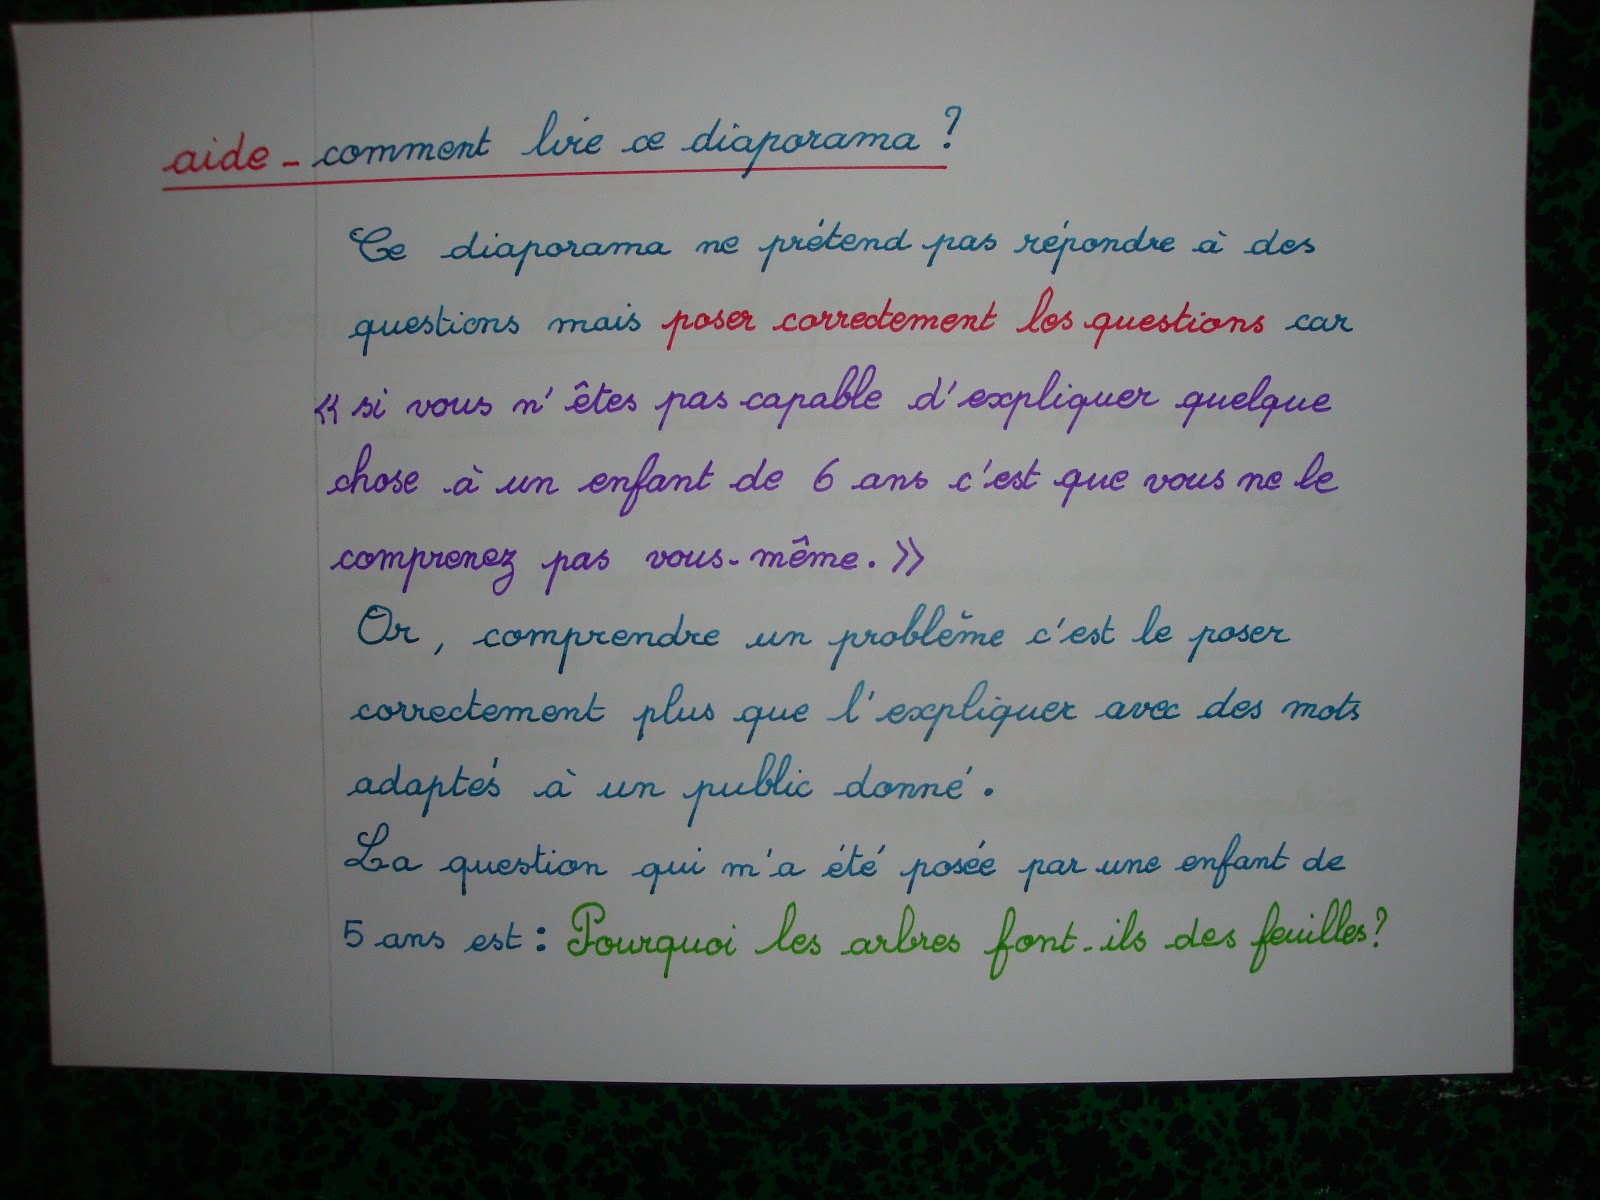 aide - comment lire ce diaporama ?
Ce diaporama ne prétend pas répondre à des
questions mais poser correctement les questions car
« si vous n'êtes pas capable d'expliquer quelque
chose à un enfant de 6 ans c'est que vous ne le
comprenez pas vous-même. »
Or, comprendre un problème c'est le poser
correctement plus que l'expliquer avec des mots
adaptés à un public donné.
La question qui m'a été posée par une enfant de
5 ans est : Pourquoi les arbres font-ils des feuilles ?